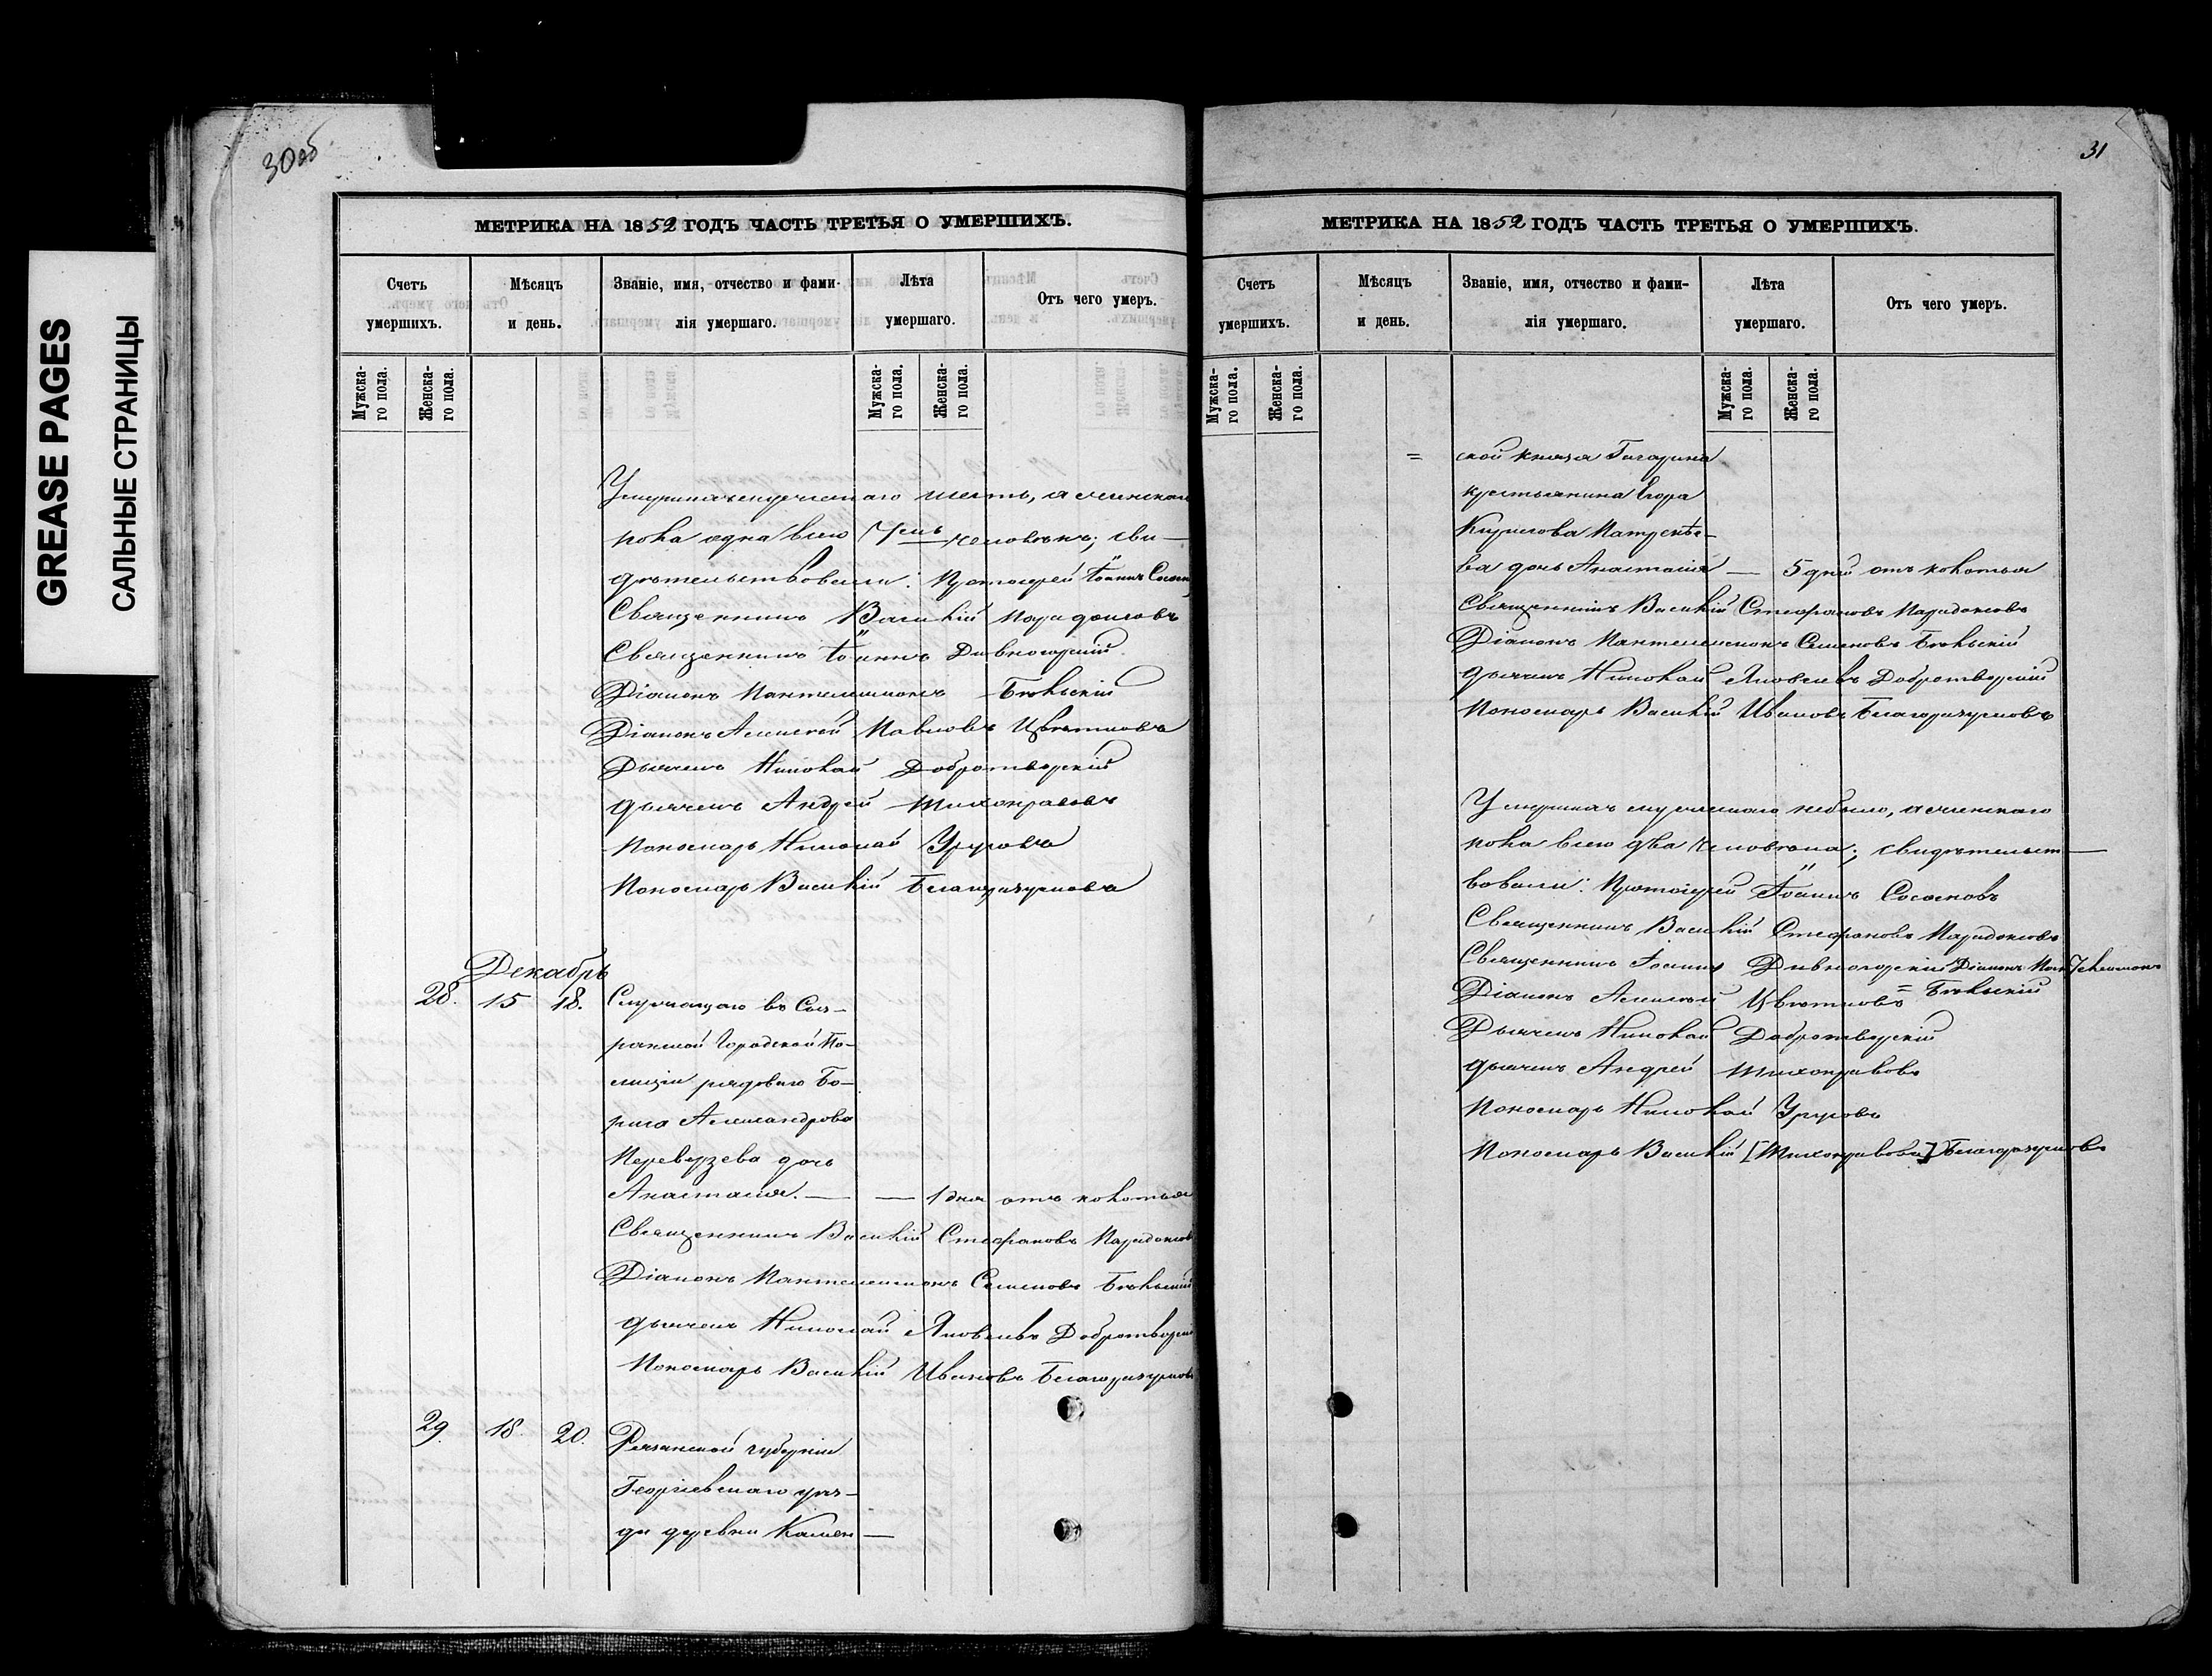 GREASE PAGES
САЛЬНЫЕ СТРАНИЦЫ
30об
МЕТРИКА НА 1852 ГОДЪ ЧАСТЬ ТРЕТЬЯ О УМЕРШИХЪ.
Счетъ умершихъ.
Мѣсяцъ и день.
Званіе, имя, отчество и фами-
лія умершаго.
Лѣта умершаго.
Отъ чего умеръ.
Мужска-
го пола.
Женска-
го пола.
Мужска-
го пола.
Женска-
го пола.
Умершихъ мужескаго шесть, а женскаго
пола одна всего 7емь человѣкъ; сви-
дѣтельствовали: Протоіерей Іоаннъ
Священникъ Василій Парадоксовъ
Священникъ Іоаннъ Дивногорскій
Діаконъ Пантелеимонъ Бѣльскій
Діаконъ Алексѣй Павловъ Цвѣтковъ
Дьячекъ Николай Добротворскій
дьячекъ Андрей Тихонравовъ
Пономарь Николай
Пономарь Василій Благоразумовъ
Декабрь
28. 15 18. Служащаго въ Сыз-
ранской Городской По-
лиціи рядоваго Бо-
риса Александрова
Переверзева дочь
Анастасія. — — 1 дня отъ колотья
Священникъ Василій Стефановъ Парадоксовъ
Діаконъ Пантелеимонъ Семеновъ Бѣльскій
дьячекъ Николай Яковлевъ Добротворскій
Пономарь Василій Ивановъ Благоразумовъ
29. 18. 20. Рязанской губерніи
Георгіевскаго уѣз-
да деревни Камен—
31
МЕТРИКА НА 1852 ГОДЪ ЧАСТЬ ТРЕТЬЯ О УМЕРШИХЪ.
Счетъ умершихъ.
Мѣсяцъ и день.
Званіе, имя, отчество и фами-
лія умершаго.
Лѣта умершаго.
Отъ чего умеръ.
Мужска-
го пола.
Женска-
го пола.
Мужска-
го пола.
Женска-
го пола.
= ской князя Гагарина
крестьянина Егора
Кирилова Матренѣ-
ва дочь Анастасія — 5 дней отъ колотья
Священникъ Василій Стефановъ Парадоксовъ
Діаконъ Пантелеимонъ Семеновъ Бѣльскій
дьячекъ Николай Яковлевъ Добротворскій
Пономарь Василій Ивановъ Благоразумовъ
Умершихъ мужескаго небыло, а женскаго
пола всего два человѣка; свидѣтельст—
вовали: Протоіерей Іоаннъ Сосновъ
Священникъ Василій Стефановъ Парадоксовъ
Священникъ Іоаннъ Дивногорскій Діаконъ Пантелеимонъ
Діаконъ Алексѣй Цвѣтковъ = Бѣльскій
Дьячекъ Николай Добротворскій
дьячекъ Андрей Тихонравовъ
Пономарь Николай
Пономарь Василій [Тихонравовъ] Благоразумовъ